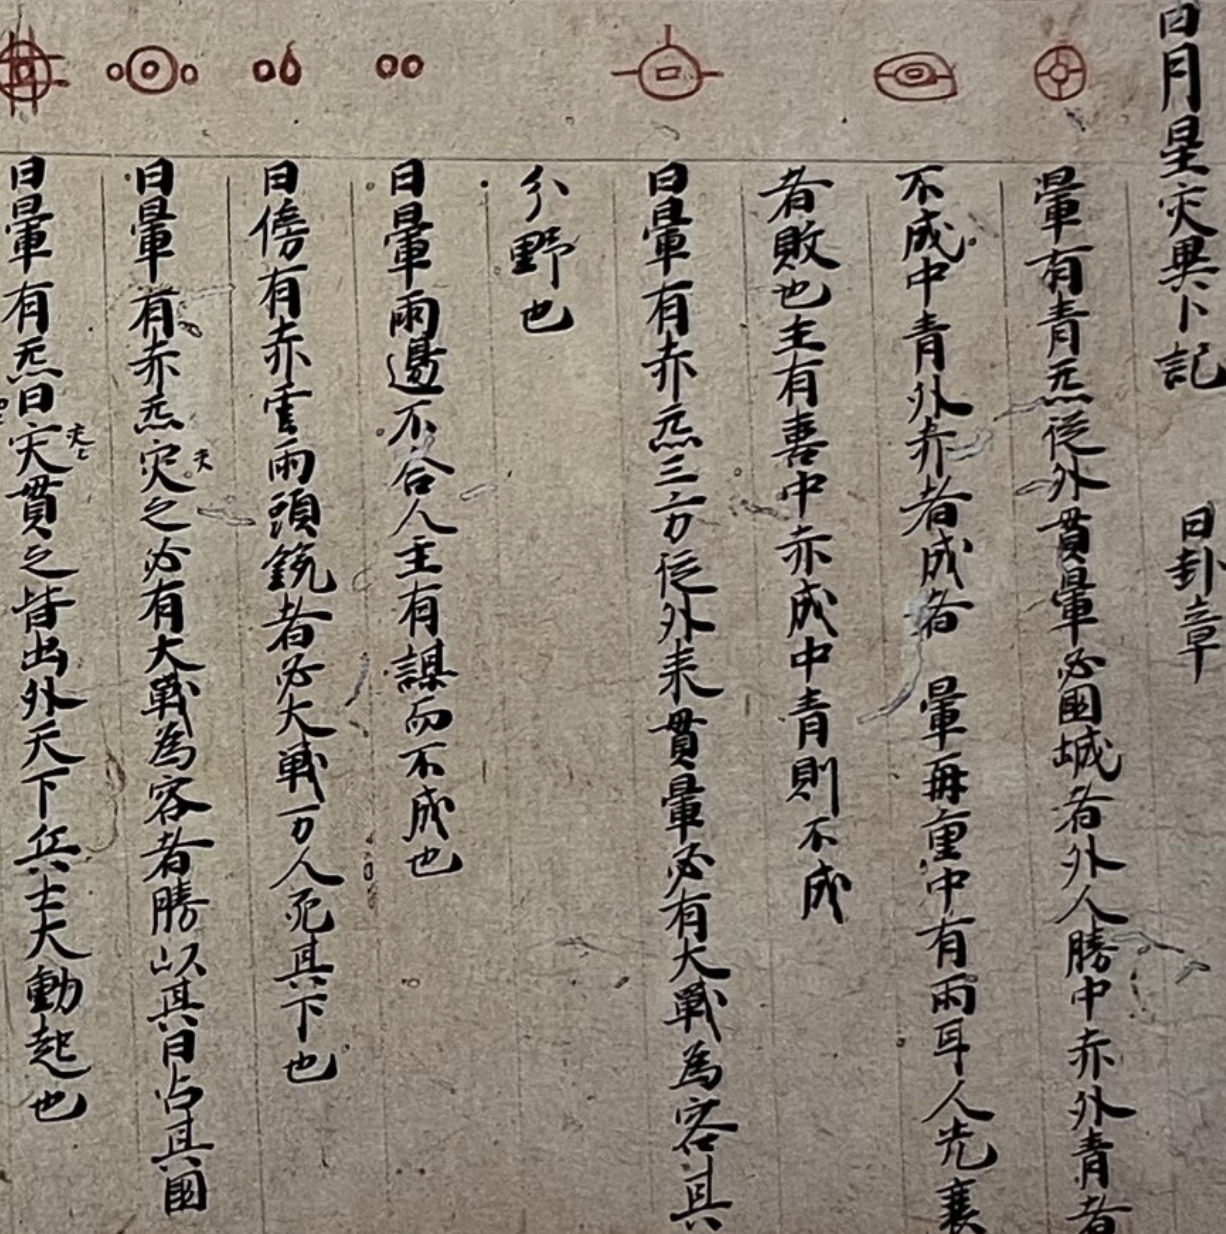 日月星灾異卜記 日卦章
暈有青炁従外貫暈必囲城者外人勝中赤外青者
不成中青外赤者成者 暈再重中有兩耳人先襄
者敗也主有喜中赤成中青則不成
日暈有赤炁三方従外来貫暈必有大戰為客其
分野也
日暈兩邊不合人主有謀而不成也
日傍有赤雲兩頭銳者必大戰万人死其下也
日暈有赤炁灾之必有大戰為客者勝以其日占其國
夾
日暈有炁日灾貫之皆出外天下兵士大動起也
夾